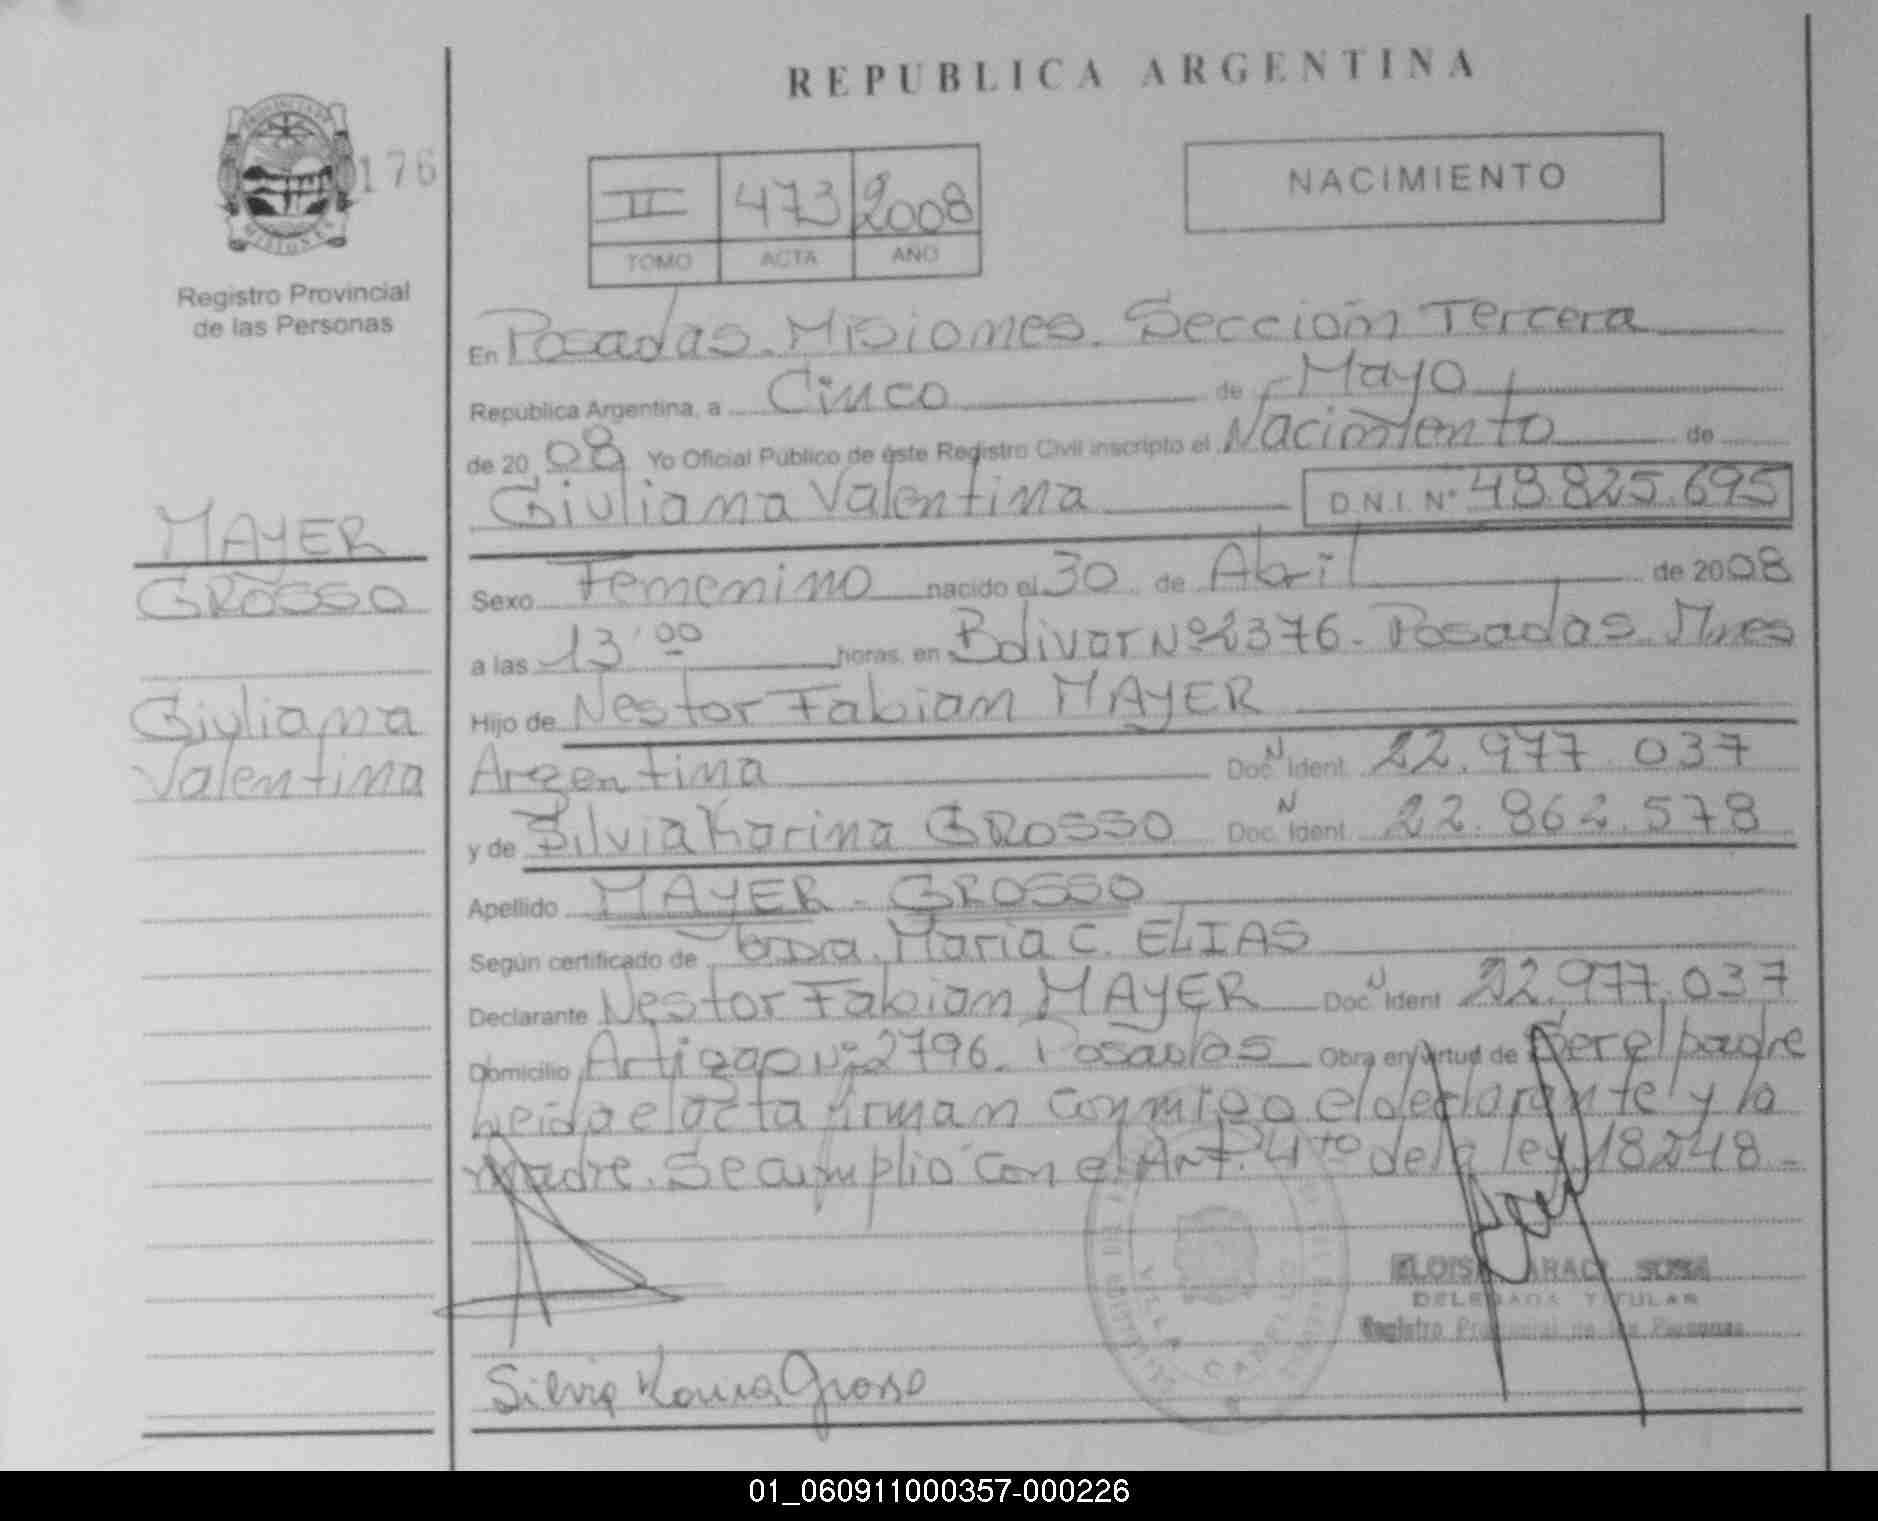 REPUBLICA ARGENTINA
PROVINCIA DE
MISIONES
176
Registro Provincial
de las Personas
II 473 2008
TOMO ACTA AÑO
NACIMIENTO
En Posadas. Misiones. Sección Tercera
Republica Argentina, a Cinco de Mayo
de 2008 Yo Oficial Público de éste Registro Civil inscripto el Nacimiento de
Giuliana Valentina D.N.I. Nº 48.825.695
MAYER
GROSSO
Giuliana
Valentina
Sexo Femenino nacido el 30 de Abril de 2008
a las 13:00 horas, en Bolivar Nº 2376. Posadas Mnes
Hijo de Nestor Fabian MAYER
Argentina Doc. N Ident. 22.977.037
y de Silvia Karina GROSSO Doc. N Ident. 22.862.578
Apellido MAYER - GROSSO
Según certificado de Dra. Maria C. ELIAS
Declarante Nestor Fabian MAYER Doc. N Ident 22.977.037
Domicilio Artigas Nº 2796. Posadas Obra en virtud de Ser el padre
Leida el acta firman conmigo el declarante y la
madre. Se cumplio con el Art. 4to de la ley 18248.-
SOSA
DELEGADA TITULAR
Registro Provincial de las Personas
VILLA CABELLO
Silvia Karina Grosso
01_060911000357-000226